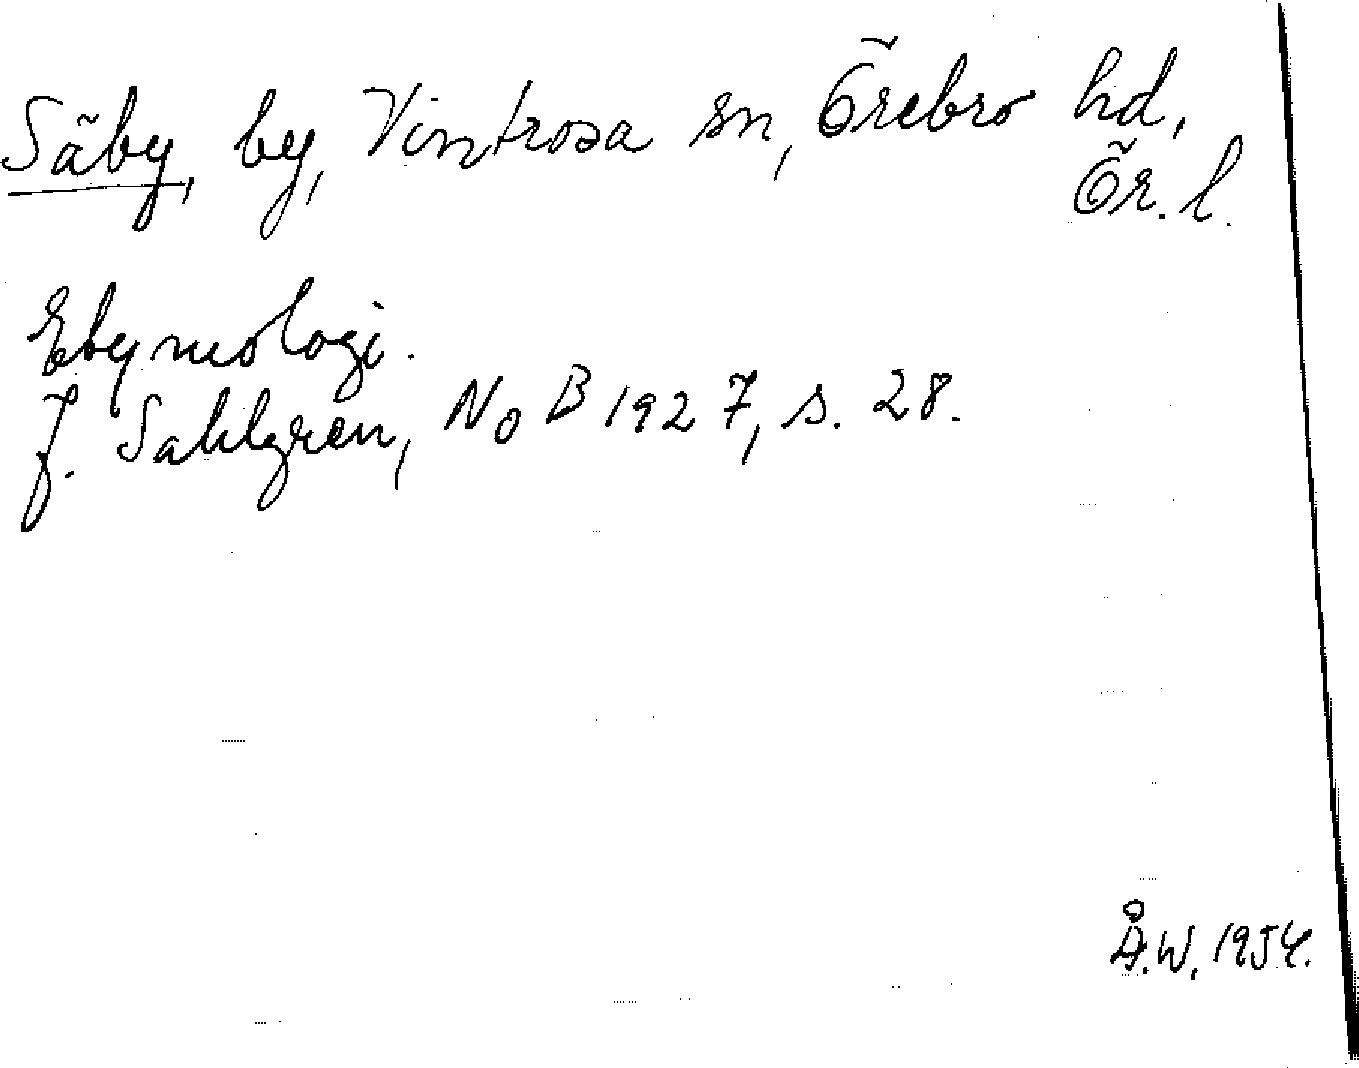 Säby, by, Vintrosa sn, Örebro hd,
Ör. l.
Etymologi.
J. Sahlgren, NoB 1927, s. 28.
Å.W. 1954.